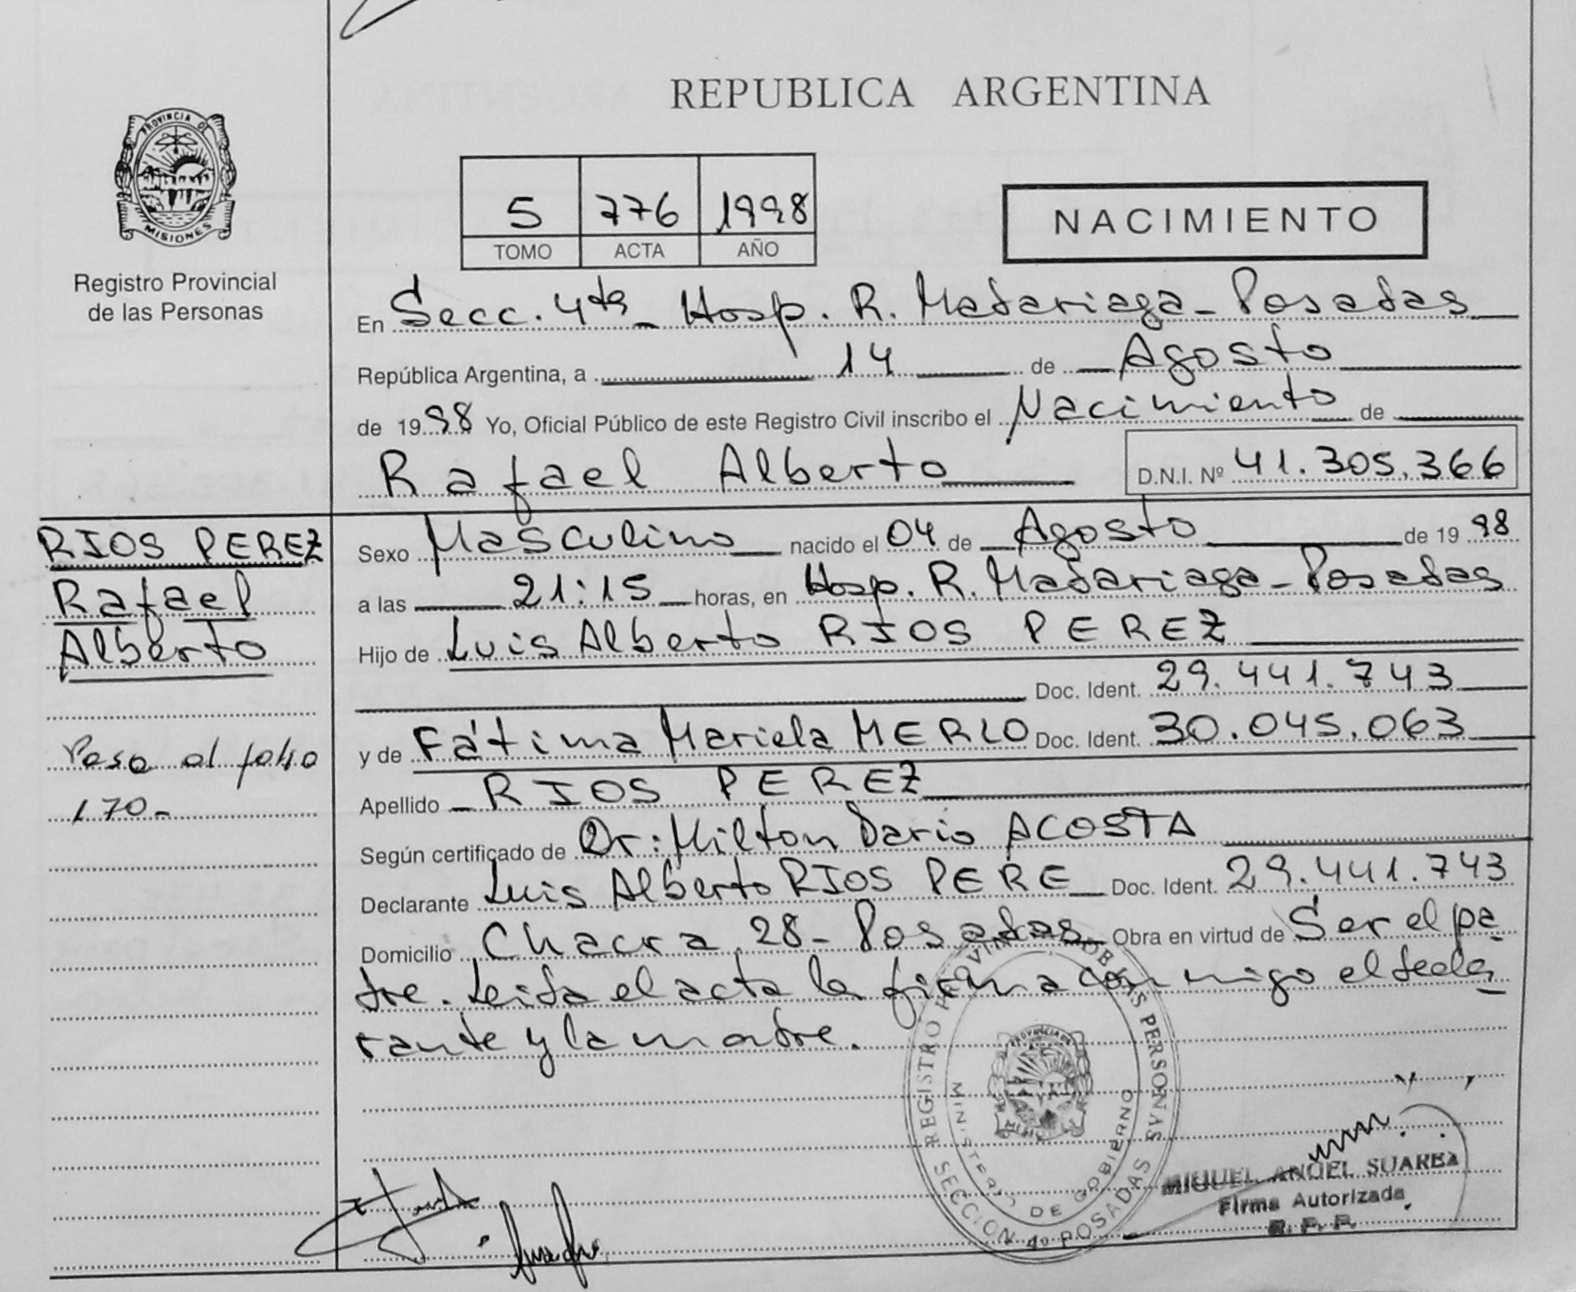 REPUBLICA ARGENTINA
PROVINCIA DE
MISIONES
Registro Provincial
de las Personas
5 776 1998
TOMO ACTA AÑO
NACIMIENTO
En Secc. 4ta - Hosp. R. Madariaga - Posadas
República Argentina, a 14 de Agosto
de 1998 Yo, Oficial Público de este Registro Civil inscribo el Nacimiento de
Rafael Alberto D.N.I. Nº 41.305.366
RIOS PEREZ
Rafael
Alberto
Paso al folio
170-
Sexo Masculino nacido el 04 de Agosto de 1998
a las 21:15 horas, en Hosp. R. Madariaga - Posadas
Hijo de Luis Alberto RIOS PEREZ
Doc. Ident. 29.441.743
y de Fátima Mariela MERLO Doc. Ident. 30.045.063
Apellido RIOS PEREZ
Según certificado de Dr: Milton Dario ACOSTA
Declarante Luis Alberto RIOS PERE Doc. Ident. 29.441.743
Domicilio Chacra 28 - Posadas Obra en virtud de Ser el pa
dre. Leida el acta la firma conmigo el decla
rante y la madre.
REGISTRO PROVINCIAL DE LAS PERSONAS
MINISTERIO DE GOBIERNO
SECCION 4º POSADAS
MIGUEL ANGEL SUAREZ
Firma Autorizada
R. P. P.